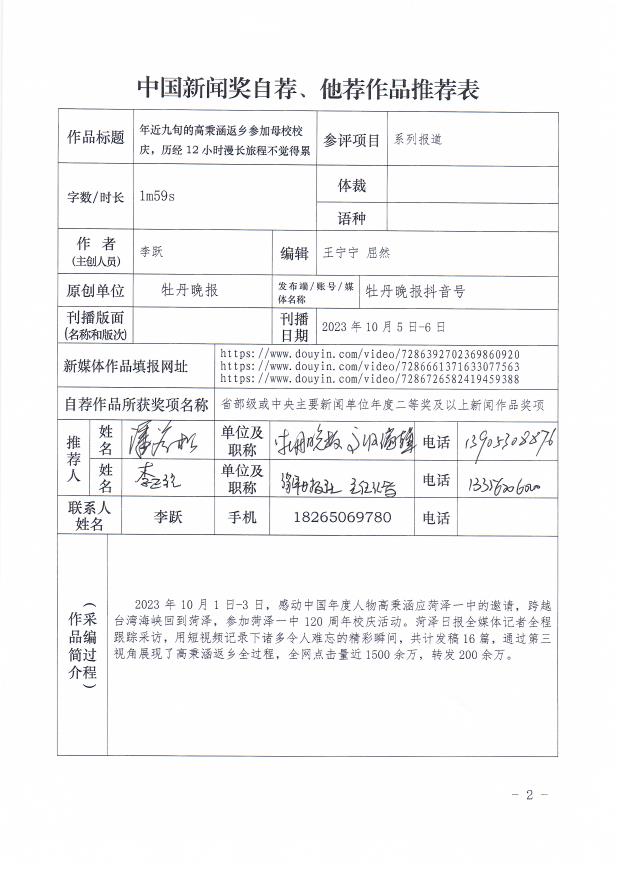 中国新闻奖自荐、他荐作品推荐表
作品标题
年近九旬的高秉涵返乡参加母校校
庆，历经 12 小时漫长旅程不觉得累
参评项目
系列报道
字数/时长
1m59s
体裁
语种
作 者
(主创人员)
李跃
编辑
王宁宁 屈然
原创单位
牡丹晚报
发布端/账号/媒
体名称
牡丹晚报抖音号
刊播版面
(名称和版次)
刊播
日期
2023 年 10 月 5 日-6 日
新媒体作品填报网址
https://www.douyin.com/video/7286392702369860920
https://www.douyin.com/video/7286661371633077563
https://www.douyin.com/video/7286726582419459388
自荐作品所获奖项名称
省部级或中央主要新闻单位年度二等奖及以上新闻作品奖项
推荐人
姓名
单位及
职称
牡丹晚报
电话
13905308876
姓名
单位及
职称
电话
联系人
姓名
李跃
手机
18265069780
电话
作品简介
（采编过程）
2023 年 10 月 1 日-3 日，感动中国年度人物高秉涵应菏泽一中的邀请，跨越
台湾海峡回到菏泽，参加菏泽一中 120 周年校庆活动。菏泽日报全媒体记者全程
跟踪采访，用短视频记录下诸多令人难忘的精彩瞬间，共计发稿 16 篇，通过第三
视角展现了高秉涵返乡全过程，全网点击量近 1500 余万，转发 200 余万。
- 2 -